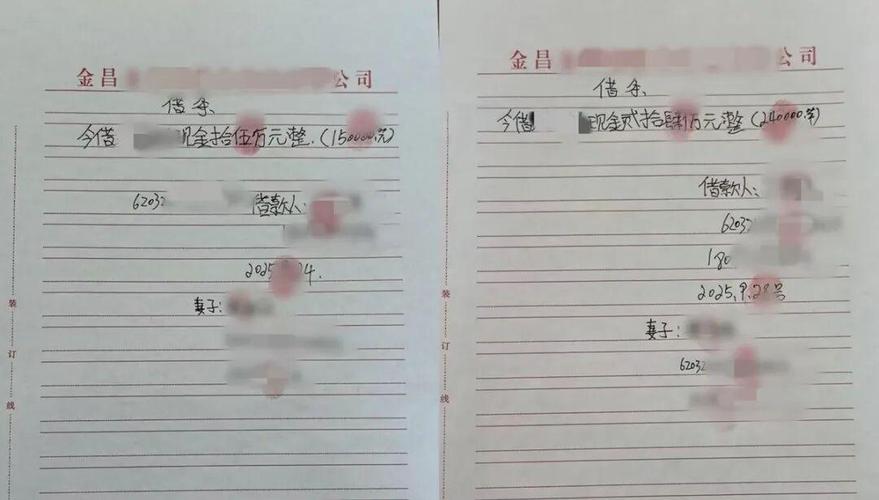 金昌 公司
借条
今借 现金拾伍万元整.(150000元)
62032 借款人:
2025 24.
妻子:
装
订
线
金昌 公司
借条
今借 现金贰拾肆万元整(240000元)
借款人:
62032
180
2025.9.28号
妻子:
62032
装
订
线